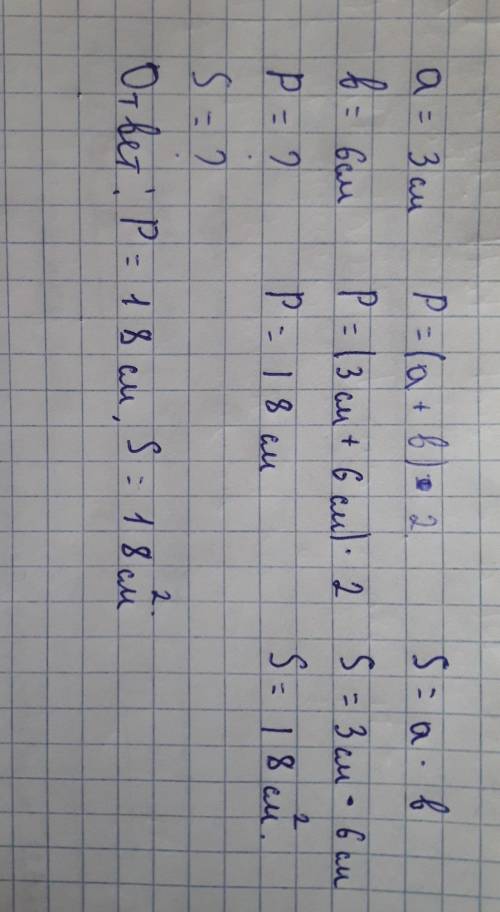 a = 3см P = (a + b) · 2 S = a · b
b = 6см P = (3 см + 6 см) · 2 S = 3 см · 6 см
P = ? P = 18 см S = 18 см².
S = ?
Ответ: P = 18 см, S = 18 см².